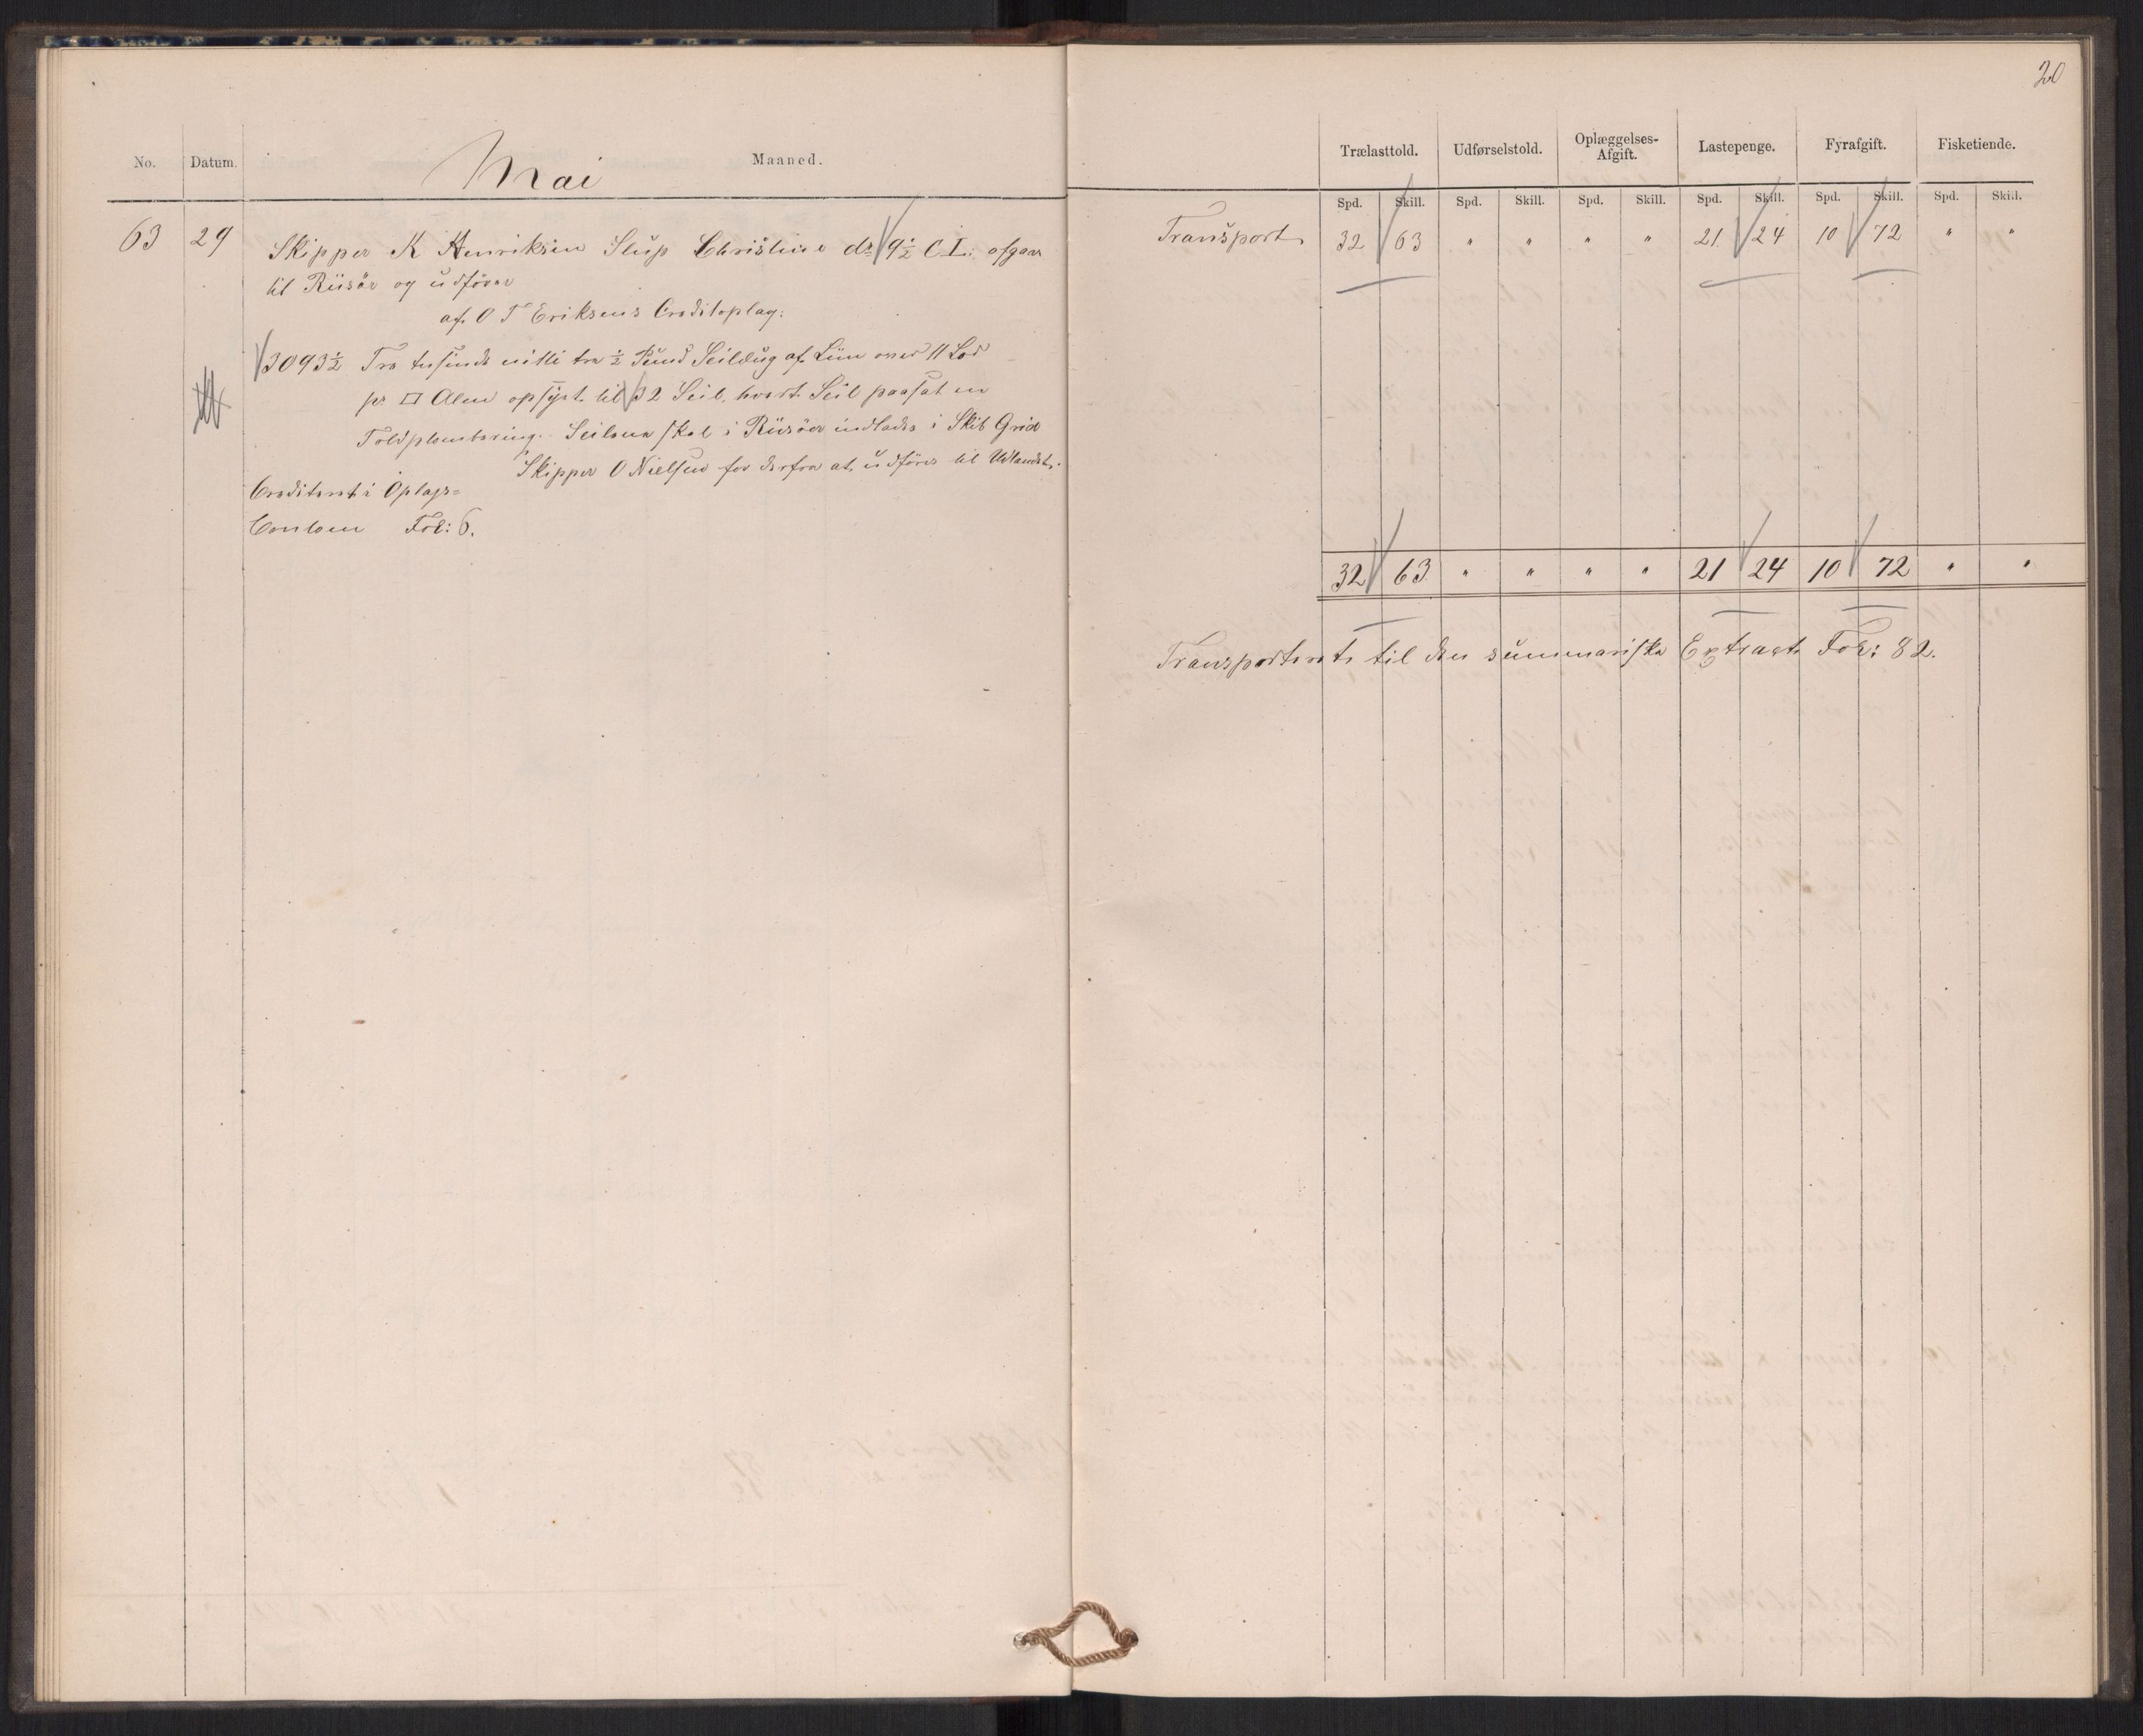 20
No. Datum. Mai Maaned.
63 29 Skipper K Henriksen Slup Christine dr 9½ C. L. afgaar
til Riisør og udfører
af O T Eriksens Creditoplag:
3093½ Tre tusinde nitti tre ½ Pund Seildug af Liin over 11 Lod
pr □ Alen opsyet til 32 Seil, hvert Seil paasat en
Toldplombering. Seilene skal i Riisøer indlades i Skib Grid
Skipper O Nielsen for derfra at udføres til Udlandet.
Crediteret i Oplags-
Contoen Fol: 6.
Trælasttold. Udførselstold. Oplæggelses-Afgift. Lastepenge. Fyrafgift. Fisketiende.
Spd. Skill. Spd. Skill. Spd. Skill. Spd. Skill. Spd. Skill. Spd. Skill.
Transport 32 63 " " " " 21 24 10 72 " "
32 63 " " " " 21 24 10 72 " "
Transporteret til den summariske Extract Fol: 82.